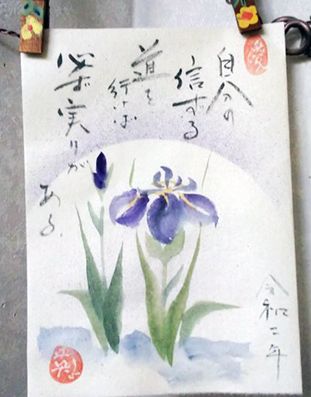 自分の
信ずる
道を
行けば
必ず実りが
ある
令和二年